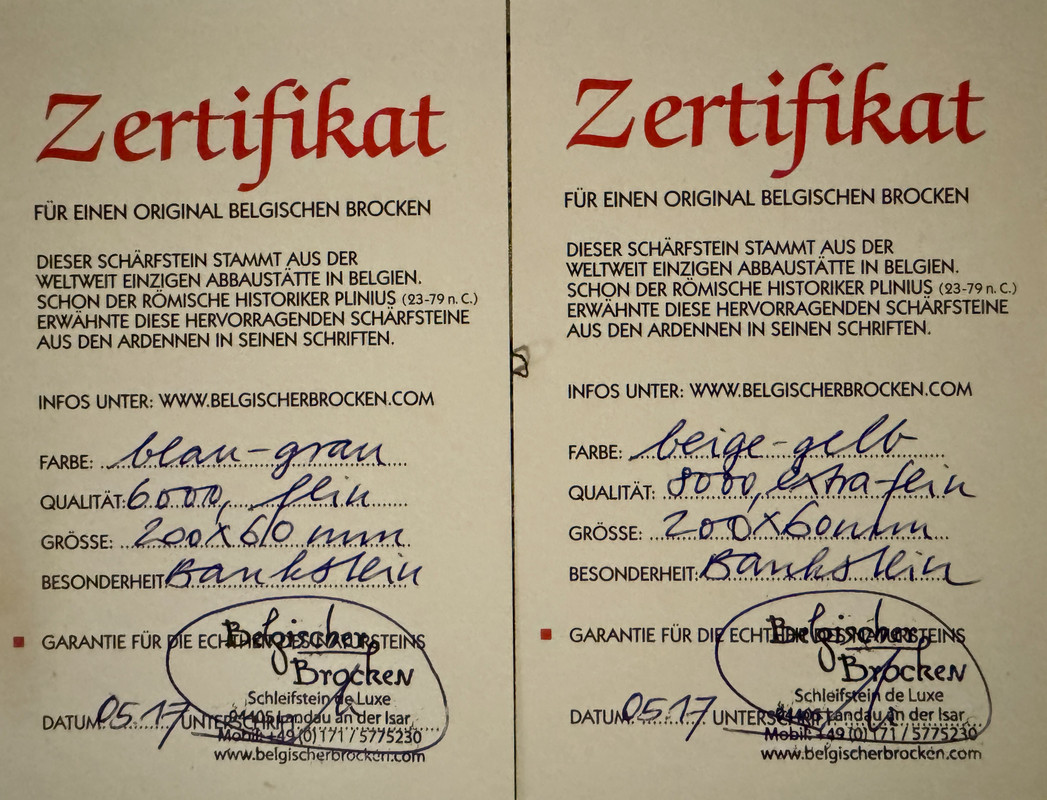 Zertifikat
FÜR EINEN ORIGINAL BELGISCHEN BROCKEN
DIESER SCHÄRFSTEIN STAMMT AUS DER
WELTWEIT EINZIGEN ABBAUSTÄTTE IN BELGIEN.
SCHON DER RÖMISCHE HISTORIKER PLINIUS (23-79 n. C.)
ERWÄHNTE DIESE HERVORRAGENDEN SCHÄRFSTEINE
AUS DEN ARDENNEN IN SEINEN SCHRIFTEN.
INFOS UNTER: WWW.BELGISCHERBROCKEN.COM
FARBE: blau-grau
QUALITÄT: 6000, fein
GRÖSSE: 200x60 mm
BESONDERHEIT: Bankstein
GARANTIE FÜR DIE ECHTHEIT DES NATURSTEINS
Belgischer
Brocken
Schleifstein de Luxe
DATUM: 05.17 UNTERSCHRIFT:
94405 Landau an der Isar
Mobil: +49 (0) 171 / 5775230
www.belgischerbrocken.com
Zertifikat
FÜR EINEN ORIGINAL BELGISCHEN BROCKEN
DIESER SCHÄRFSTEIN STAMMT AUS DER
WELTWEIT EINZIGEN ABBAUSTÄTTE IN BELGIEN.
SCHON DER RÖMISCHE HISTORIKER PLINIUS (23-79 n. C.)
ERWÄHNTE DIESE HERVORRAGENDEN SCHÄRFSTEINE
AUS DEN ARDENNEN IN SEINEN SCHRIFTEN.
INFOS UNTER: WWW.BELGISCHERBROCKEN.COM
FARBE: beige-gelb
QUALITÄT: 8000, extra-fein
GRÖSSE: 200x60mm
BESONDERHEIT: Bankstein
GARANTIE FÜR DIE ECHTHEIT DES NATURSTEINS
Belgischer
Brocken
Schleifstein de Luxe
DATUM: 05.17 UNTERSCHRIFT:
94405 Landau an der Isar
Mobil: +49 (0) 171 / 5775230
www.belgischerbrocken.com